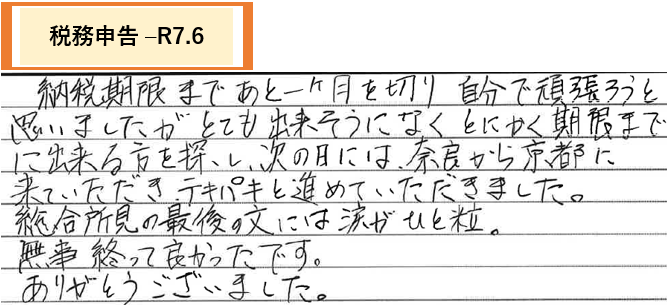 税務申告 –R7.6
納税期限まであと一ケ月を切り 自分で頑張ろうと
思いましたが とても出来そうになく とにかく期限まで
に出来る方を探し、次の日には、奈良から京都に
来ていただき テキパキと進めていただきました。
総合所見の最後の文には涙がひと粒。
無事 終って良かったです。
ありがとうございました。